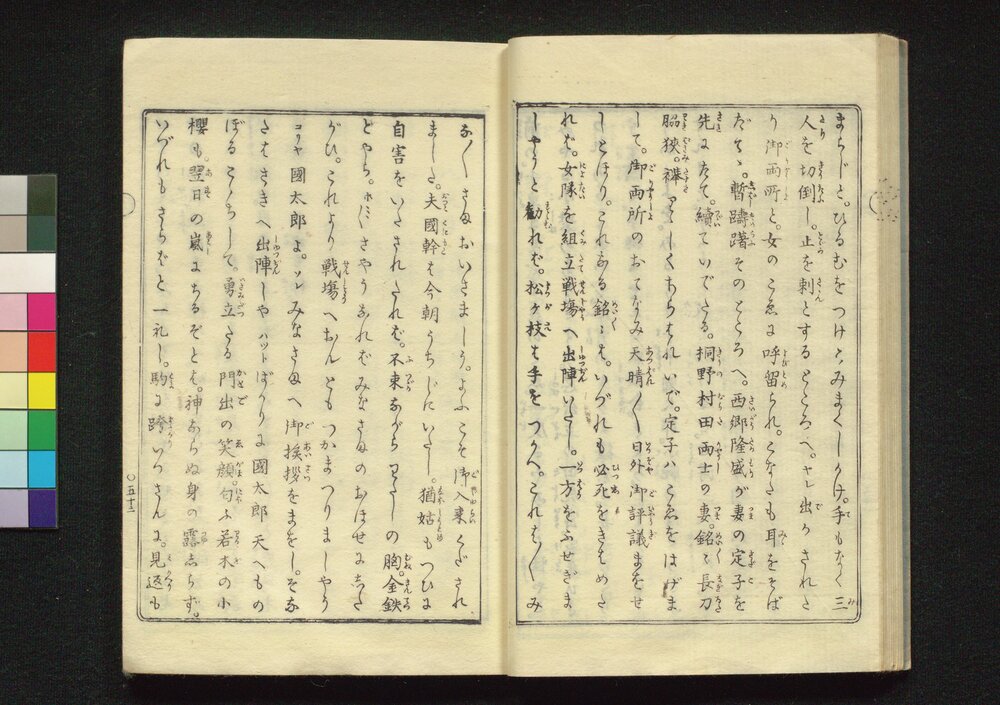 まらじと。ひるむをつけこみまくしかけ。手もなく三
人を切倒し。止を刺とするところへ。ヤレ出かされた
り御両所と。女のこゑに呼留られ。こなたも耳をそば
だて丶。暫躊躇そのところへ。西郷隆盛が妻の定子を
先にたて。續ていでたる。桐野村田両士の妻。銘〻長刀
脇狹。裸りゝしくあらはれいで。定子ハこゑをはげま
して。御両所のおてなみ天晴〳〵日外御評議まをせ
しとほり。これなる銘〻も。いづれも必死をきはめた
れば。女隊を組立戦場へ出陣いたし。一方をふせぎま
しやうと勧れば。松ヶ枝も手をつかへ。これは〳〵み
な〳〵さまおいさましう。ようこそ御入来くだされ
ました。夫國幹も今朝うちじにいたし。猶姑もつひに
自害をいたされたれば。不束ながらわたしの胸。金鉄
どやら。ホンニさやうなればみなさまのおほせにした
がひ。これより戦場へおんともつかまつりましやう
コリヤ國太郎よ。ソレみなさまへ御挨拶をまをし。そな
たはさきへ出陣しや ハット ばかりに國太郎天へもの
ぼるこゝちして。勇立たる門出の笑顔。匂ふ若木の小
櫻も。翌日の嵐にちるぞとは。神ならぬ身の露しらず。
いづれもさらばと一礼し。駒に跨いつさんに。見返も
〇五十三